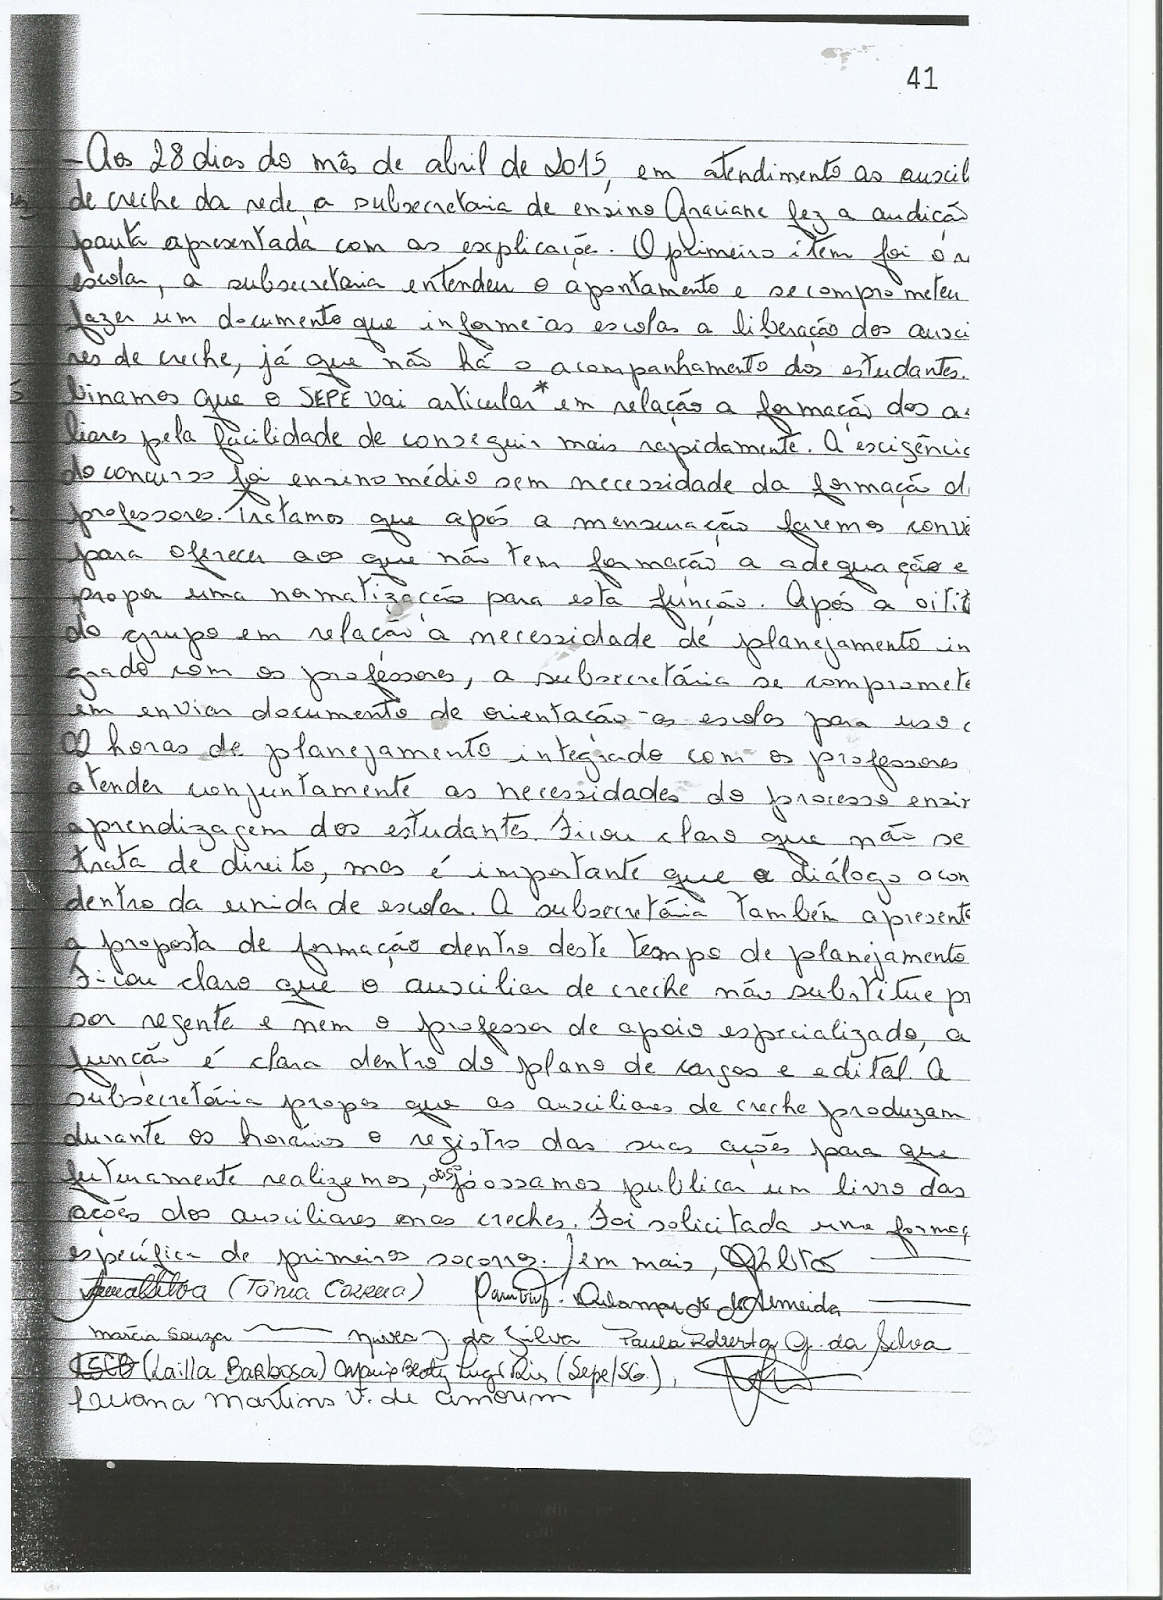 41
- Aos 28 dias do mês de abril de 2015, em atendimento as auxil
de creche da rede, a subsecretaria de ensino Graciane fez a audição
pauta apresentada com as explicaçõe. O primeiro item foi o r
escolar, a subsecretaria entendeu o apontamento e se comprometeu
fazer um documento que informe as escolas a liberação dos auxi
res de creche, já que não há o acompanhamento dos estudantes.
binamos que o SEPE vai articular* em relação a formação dos a
liares pela facilidade de conseguir mais rapidamente. A exigênci
do concurso foi ensino médio sem necessidade da formação d
professores. Tratamos que após a mensuração faremos conv
para oferecer aos que não tem formação a adequação e
propor uma normatização para esta função. Após a oiti
do grupo em relação a necessidade de planejamento in
grado com os professores, a subsecretária se compromete
em enviar documento de orientação as escolas para uso
02 horas de planejamento integrado com os professores
atender conjuntamente as necessidades do processo ensi
aprendizagem dos estudantes. Ficou claro que não se
trata de direito, mas é importante que o diálogo acon
dentro da unidade escolar. A subsecretária também apresent
a proposta de formação dentro deste tempo de planejamento
Ficou claro que o auxiliar de creche não substitue pr
sor regente e nem o professor de apoio especializado, a
função é clara dentro do plano de cargos e edital. A
subsecretária propos que as auxiliares de creche produzam
durante os horários o registro das suas ações para que
futuramente realizemos, possamos publicar um livro das
ações dos auxiliares nas creches. Foi solicitada uma formaç
específica de primeiros socorros. Sem mais,
(Tânia Correia) de Almeida
Marcia Souza da Silva Paula Roberta G. da Silva
(Lailla Barbosa) (Sepe/SG.),
Luvana Martins V. de Amorim